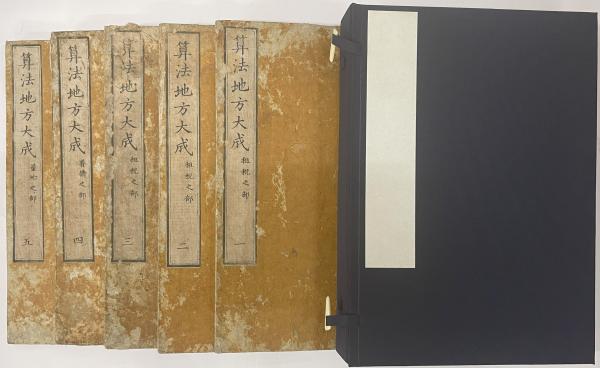 算法地方大成
租税之部
一
算法地方大成
租税之部
二
算法地方大成
租税之部
三
算法地方大成
普請之部
四
算法地方大成
量地之部
五